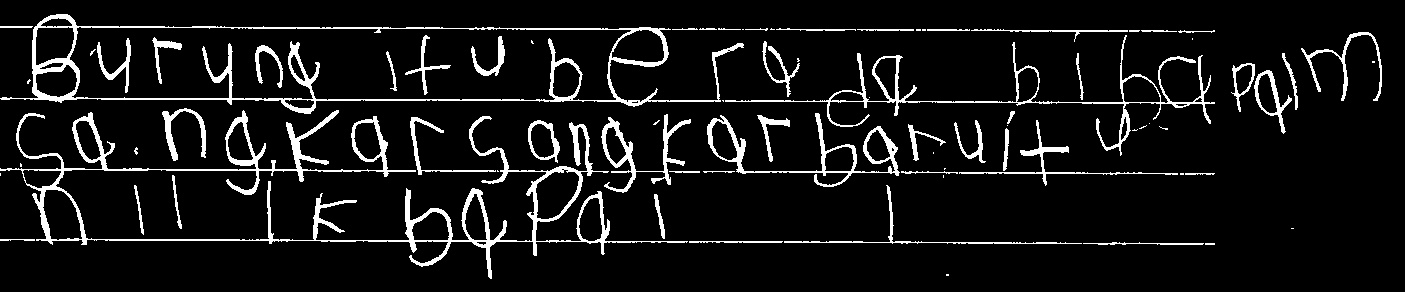 Burung itu berada bi bapalm
sangkar sangkar baru itu
nilik bapai